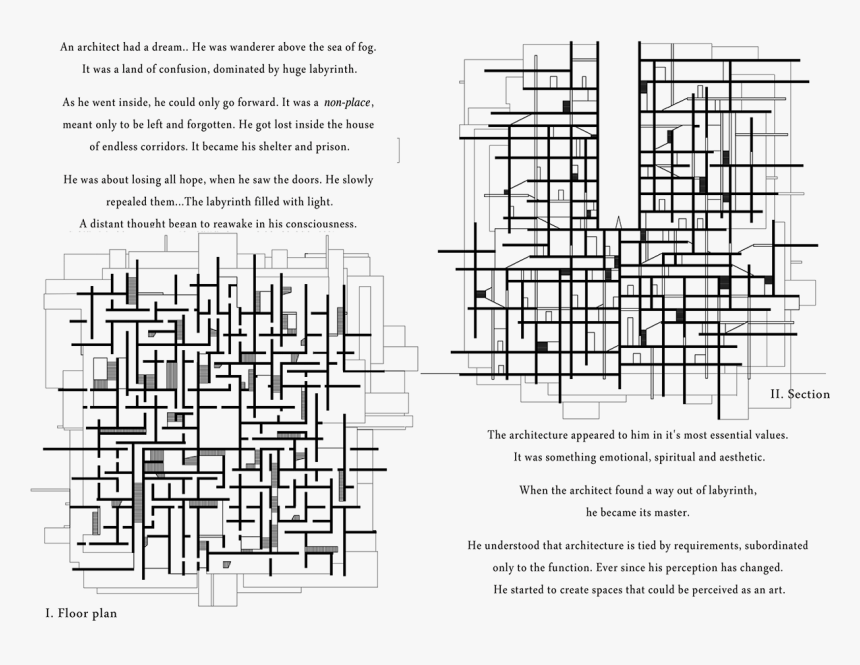 An architect had a dream.. He was wanderer above the sea of fog.
It was a land of confusion, dominated by huge labyrinth.
As he went inside, he could only go forward. It was a non-place,
meant only to be left and forgotten. He got lost inside the house
of endless corridors. It became his shelter and prison.
He was about losing all hope, when he saw the doors. He slowly
repealed them...The labyrinth filled with light.
A distant thought began to reawake in his consciousness.
I. Floor plan
II. Section
The architecture appeared to him in it's most essential values.
It was something emotional, spiritual and aesthetic.
When the architect found a way out of labyrinth,
he became its master.
He understood that architecture is tied by requirements, subordinated
only to the function. Ever since his perception has changed.
He started to create spaces that could be perceived as an art.